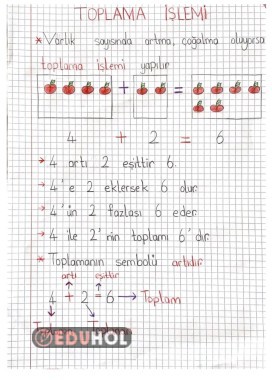 TOPLAMA İŞLEMİ
* Varlık sayısında artma, çoğalma oluyorsa
toplama işlemi yapılır
+ =
4 + 2 = 6
→ 4 artı 2 eşittir 6.
→ 4'e 2 eklersek 6 olur.
→ 4'ün 2 fazlası 6 eder.
→ 4 ile 2'nin toplamı 6'dır.
* Toplamanın sembolü artıdır.
artı eşittir
4 + 2 = 6 → Toplam
EDUHOL